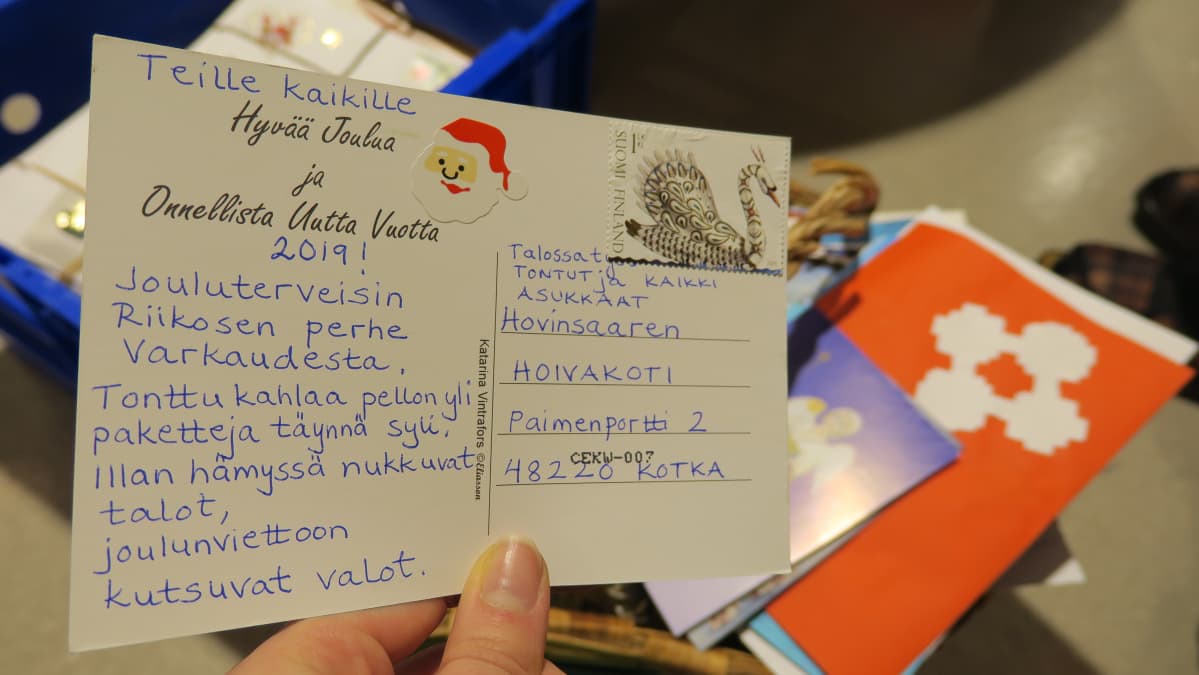 Teille kaikille
Hyvää Joulua
ja
Onnellista Uutta Vuotta
2019!
Jouluterveisin
Riikosen perhe
Varkaudesta.
Tonttu kahlaa pellon yli
paketteja täynnä syli.
Illan hämyssä nukkuvat
talot,
joulunviettoon
kutsuvat valot.
Katarina Vintrafors ©Eliasson
1
SUOMI FINLAND
Talossat
TONTUT ja KAIKKI
ASUKKAAT
Hovinsaaren
HOIVAKOTI
Paimenportti 2
CEKW-007
48220 KOTKA